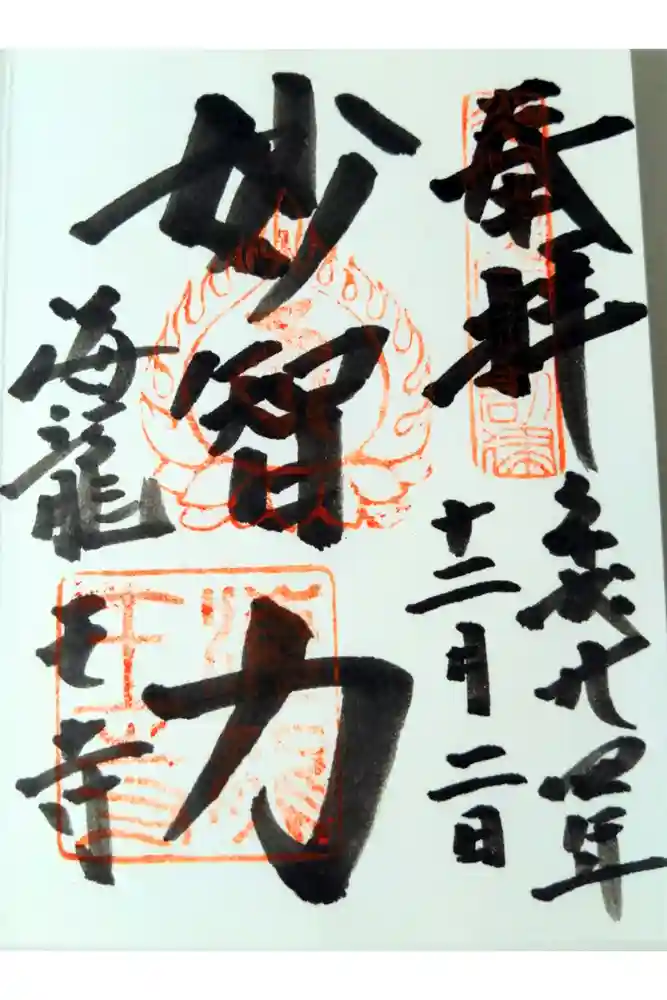 奉拝
平成廿四年
十二月二日
妙智力
海龍王寺